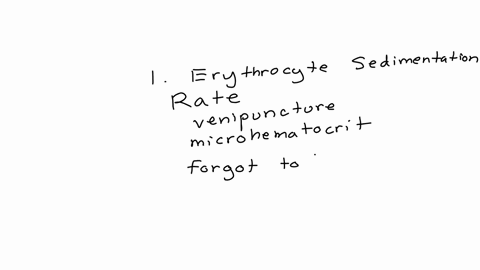 1. Erythrocyte Sedimentation
Rate
venipuncture
microhematocrit
forgot to